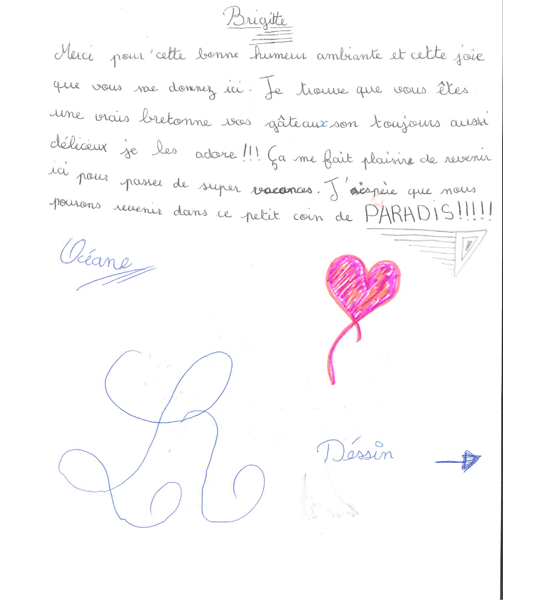 Brigitte
Merci pour cette bonne humeur ambiante et cette joie
que vous me donnez ici. Je trouve que vous êtes
une vrais bretonne vos gâteaux son toujours aussi
déliceux je les adore!!! Ça me fait plaisire de revenir
ici pour passer de super vacances. J'éspère que nous
pourons revenir dans ce petit coin de PARADIS!!!!!
Océane
Déssin